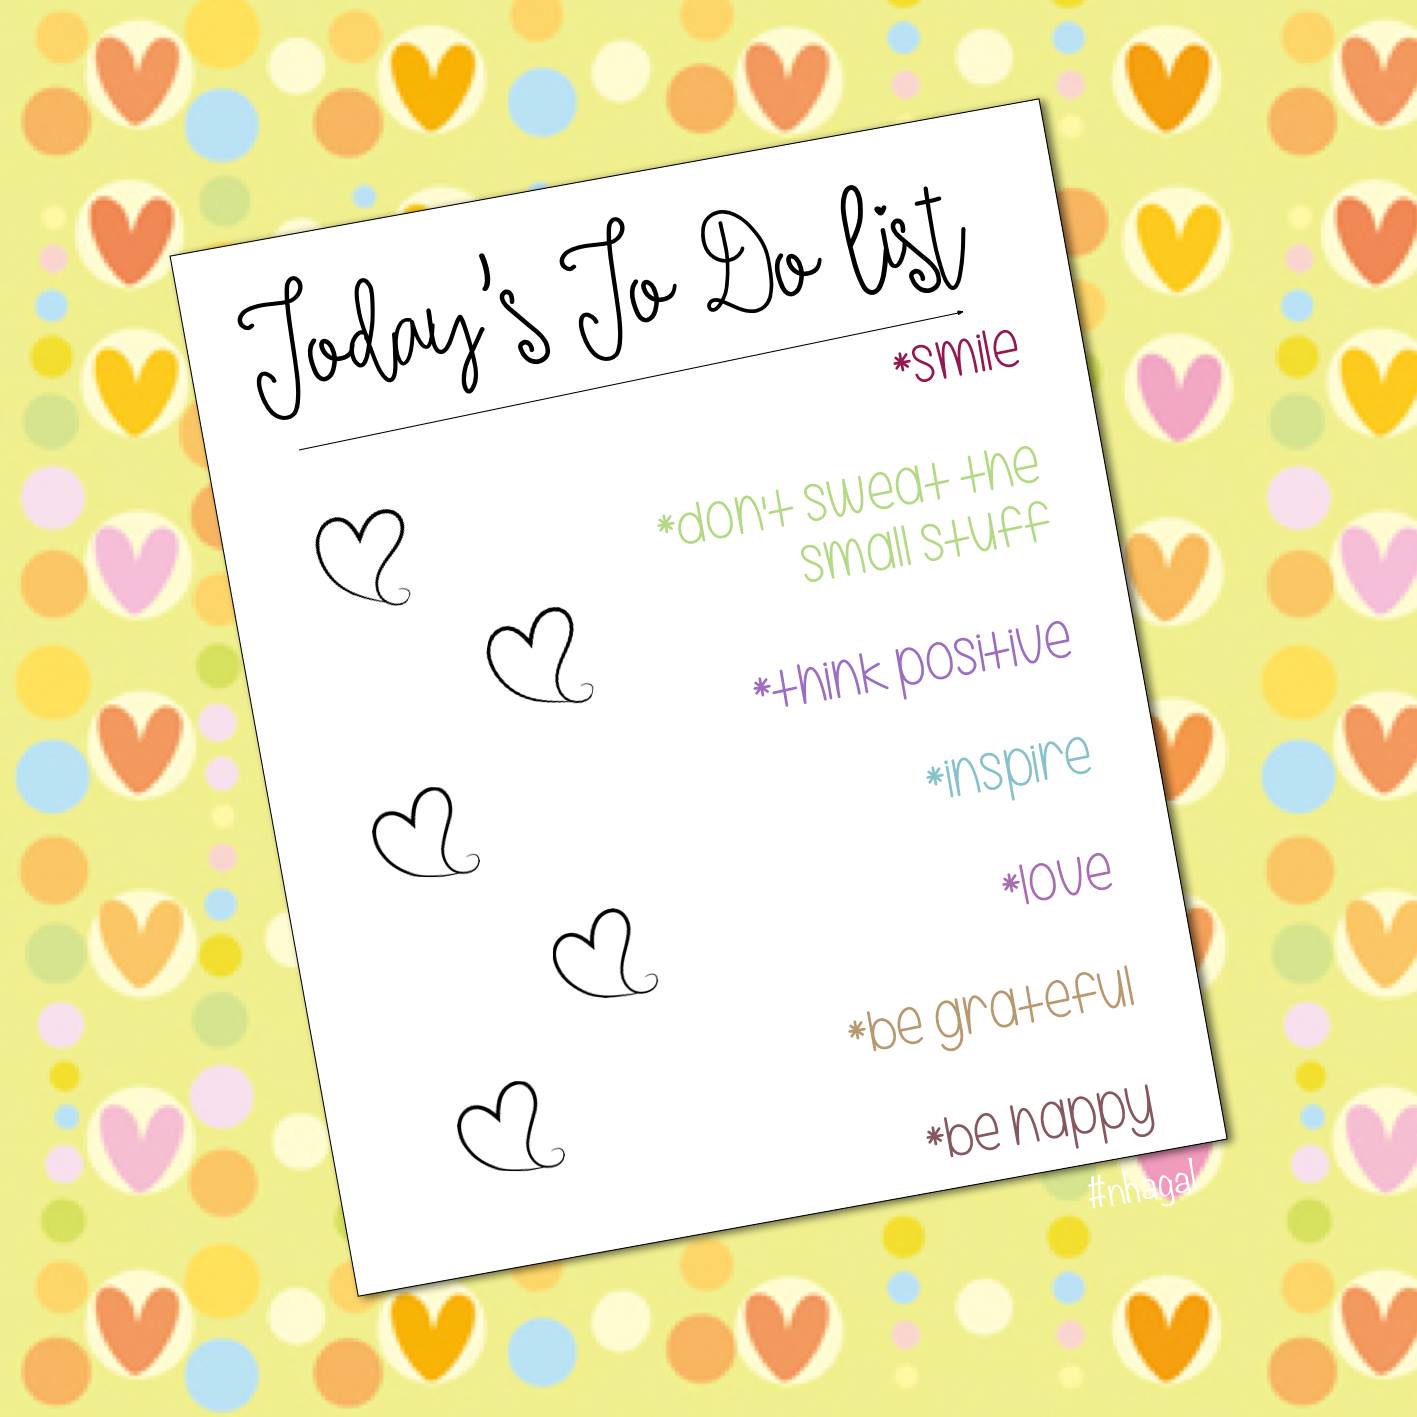 Today's To Do list
*smile
*don't sweat the
small stuff
*think positive
*inspire
*love
*be grateful
*be happy
#nhagal